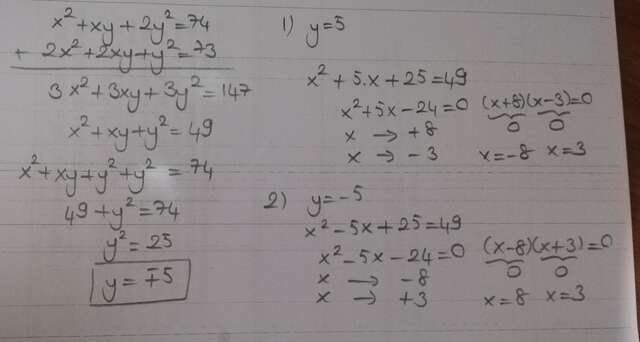 x²+xy+2y²=74
+ 2x²+2xy+y²=73
3x²+3xy+3y²=147
x²+xy+y²=49
x²+xy+y²+y²=74
49+y²=74
y²=25
y=∓5
1) y=5
x²+5.x+25=49
x²+5x-24=0 (x+8)(x-3)=0
x → +8 0 0
x → -3 x=-8 x=3
2) y=-5
x²-5x+25=49
x²-5x-24=0 (x-8)(x+3)=0
x → -8 0 0
x → +3 x=8 x=3